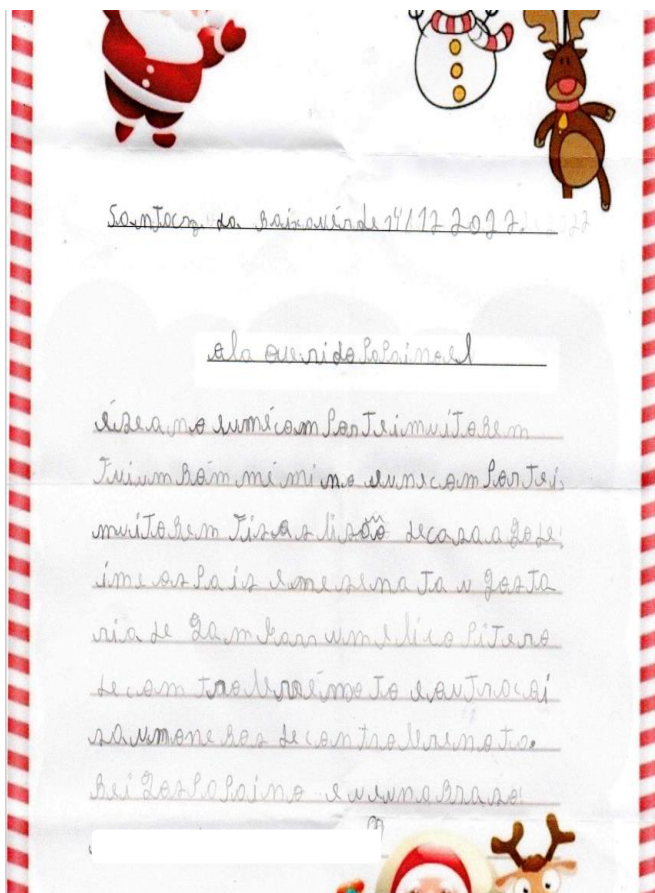 Santacrz da Baixavérde 14/12 2022.
ola querido Papai noel
ésea no eumicomportei muito bem
fui um bom mi mi no eumicomportei
muito bem fis as lisõõ decasa a Jode
ime os Pais eme sena ta u gosta
ria de gamharr um elico Pitero
de com troller eimo to e outra coi
sa umone bos de controlle remoto
bei Jos Papai no e u e um abraso